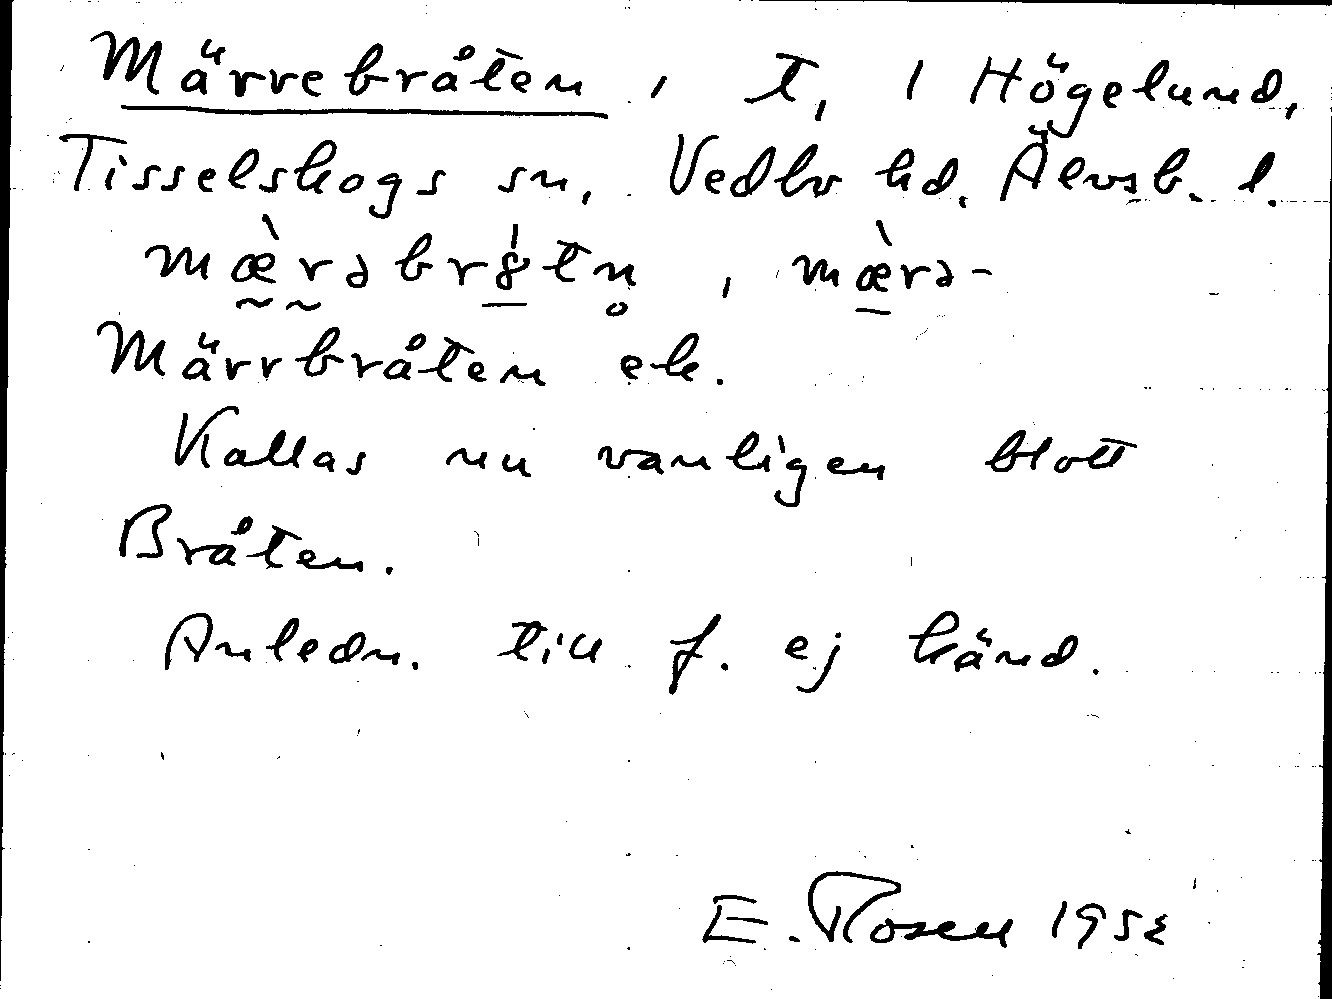 Märrebråten, t, 1 Högelund,
Tisselskogs sn, Vedbo hd. Älvsb. l.
mæ̀rəbrȣ́tn̥, mæ̀rə-
Märrbråten ek.
Kallas nu vanligen blott
Bråten.
Anledn. till f. ej känd.
E. Rosen 1952